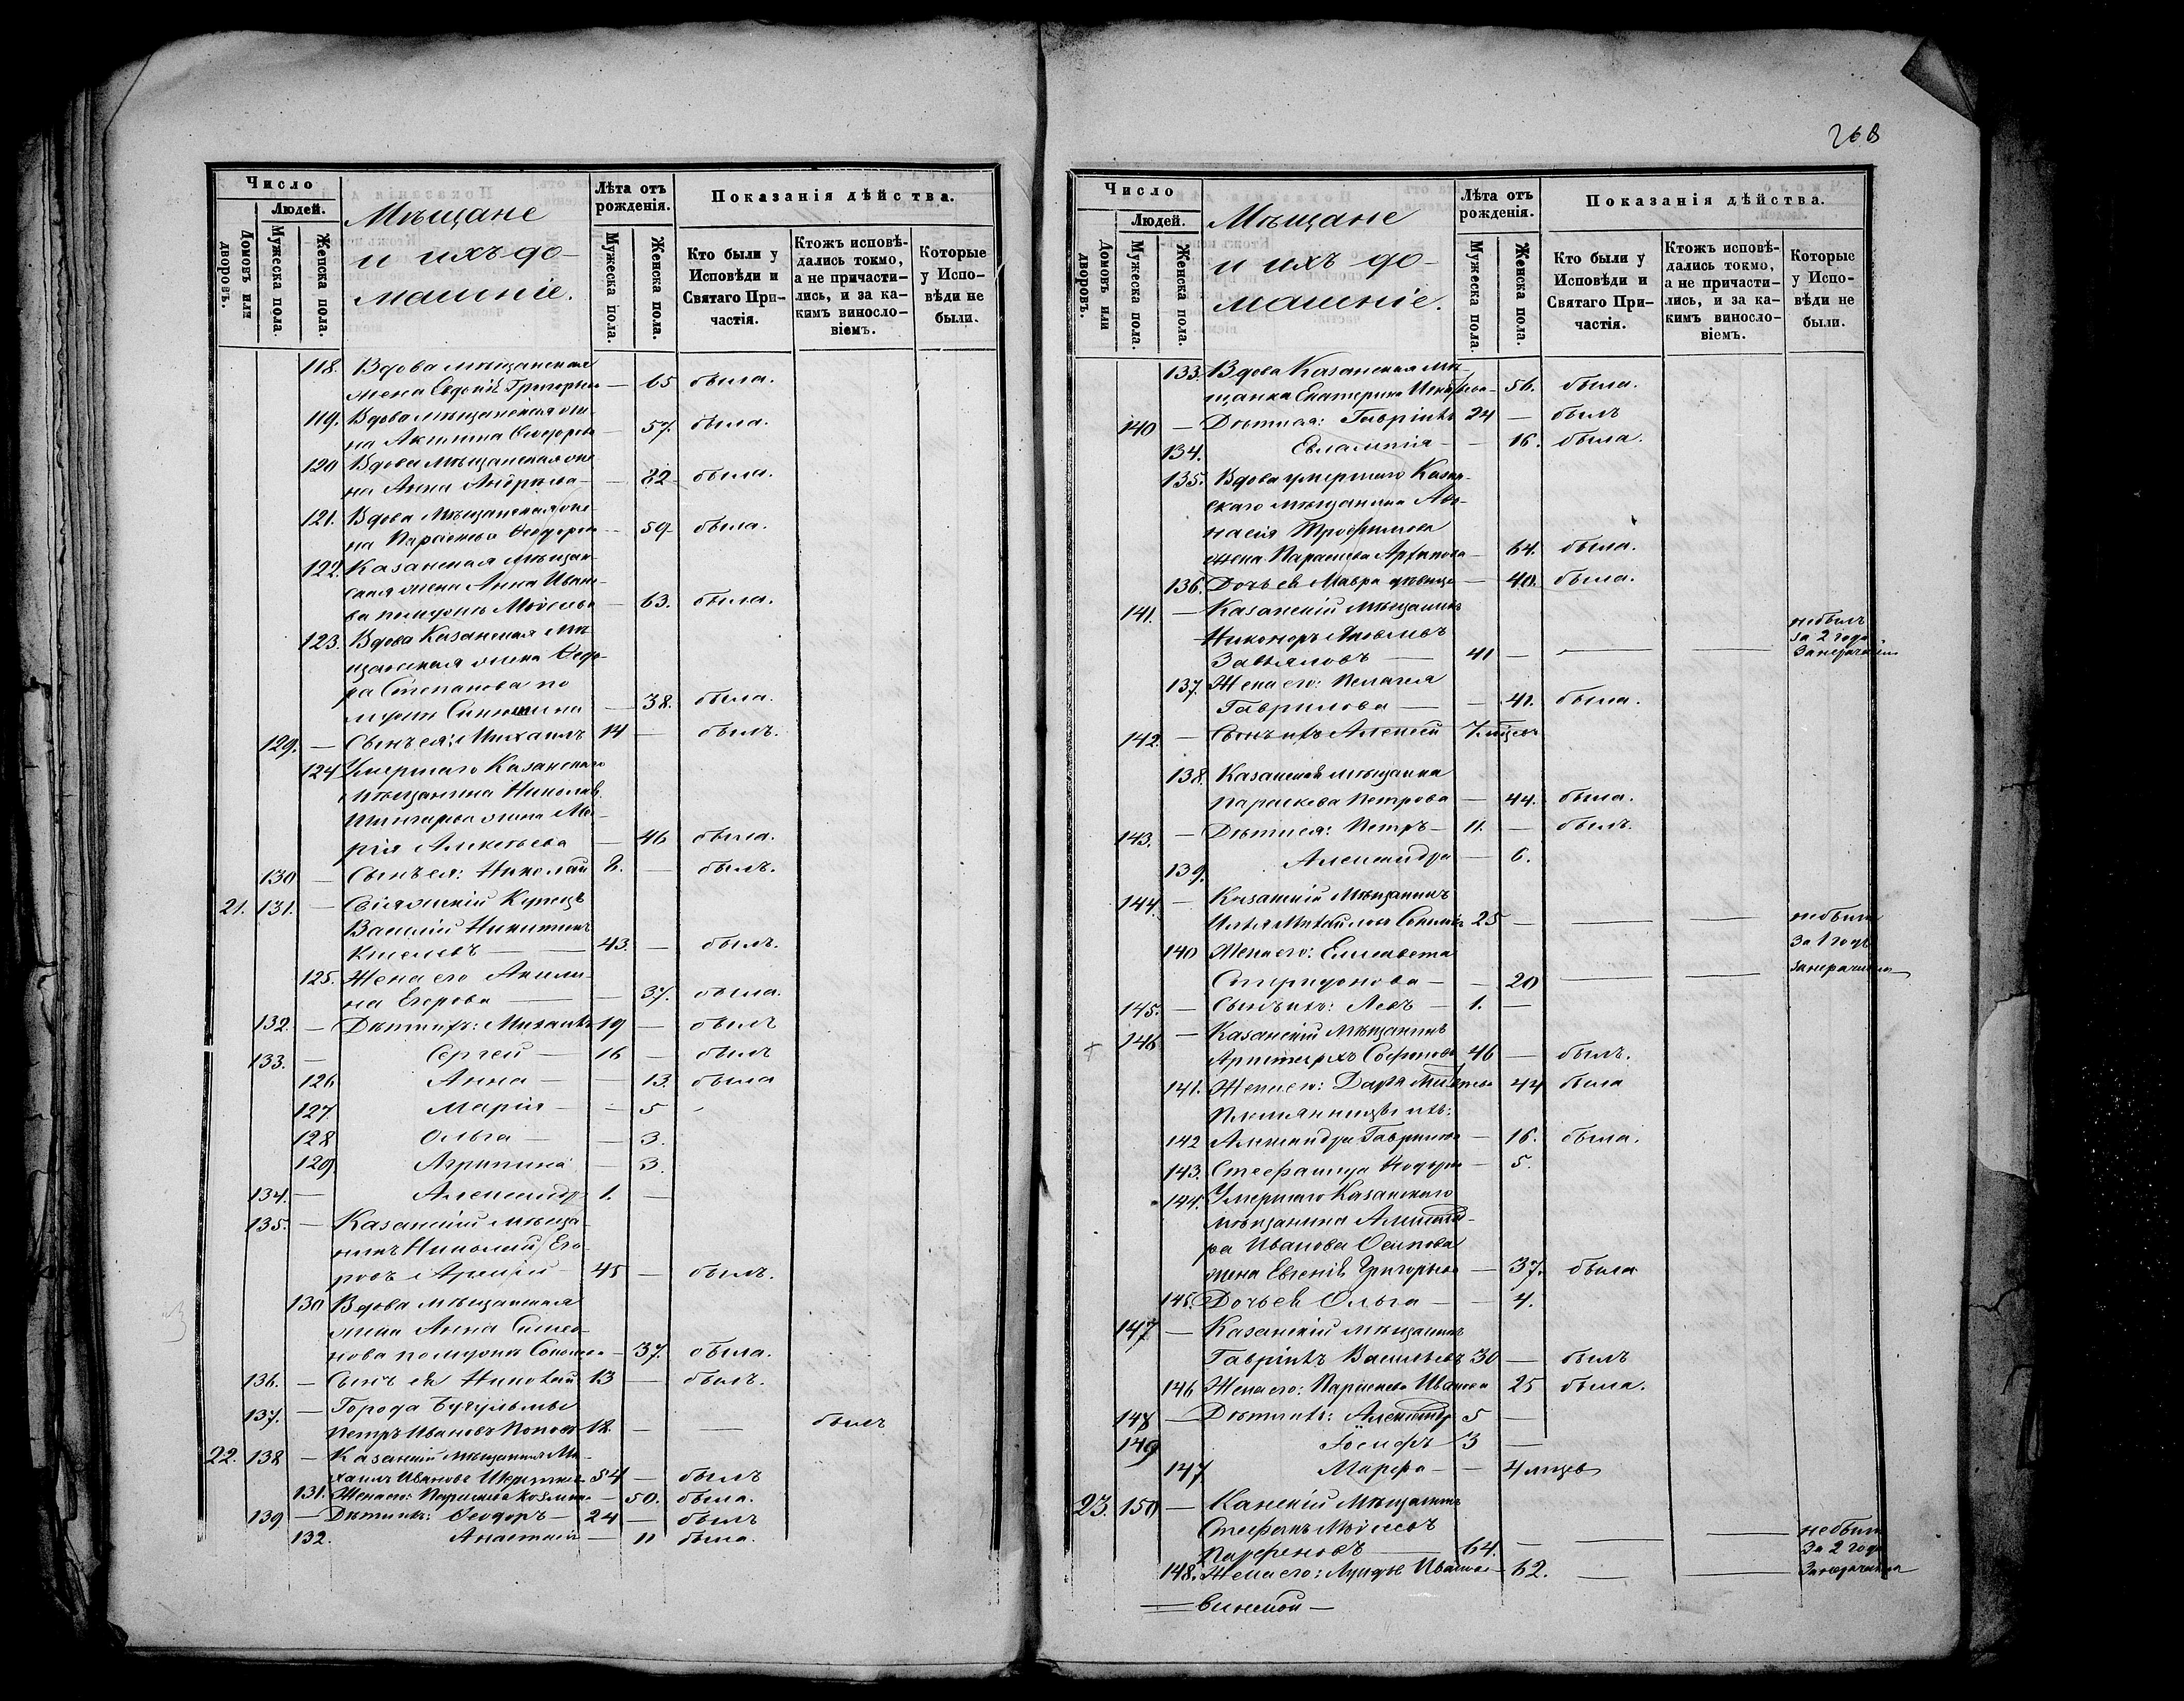 268
Число
Людей.
Домовъ или дворовъ.
Мужеска пола.
Женска пола.
Мѣщане
и ихъ до-
машніе.
Лѣта отъ рожденія.
Мужеска пола.
Женска пола.
Показанія дѣйства.
Кто были у Исповѣди и Святаго При-частія.
Ктожъ исповѣ-дались токмо, а не причасти-лись, и за ка-кимъ винословіемъ.
Которые у Испо-вѣди не были.
118. Вдова мѣщанская
жена Евдокія Григорьева — 65 была.
119. Вдова мѣщанская же-
на Акилина Ѳедорова — 57. была.
120 Вдова мѣщанская же-
на Анна Андреева — 82 была.
121. Вдова Мѣщанская же-
на Параскева Ѳедорова — 59 была.
122. Казанская мѣщан-
ская жена Анна Ивано-
ва по мужѣ — 63. была.
123. Вдова Казанская мѣ-
щанская жена Ѳедо-
ра Степанова по
мужѣ — 38. была.
129. — Сынъ ея: Михаилъ 14 — былъ.
124 Умершаго Казанскаго
Мѣщанина Николая
жена Ма-
рія Алексѣева — 46 была.
130 — Сынъ ея: Николай 8. — былъ.
21. 131. — Свіяжскій Купецъ
Василій Никитинъ
Киселевъ — 43. — былъ.
125. Жена его Акили-
на Егорова — 37. была.
132. — Дѣти ихъ: Михаилъ 19 — былъ
133. — Сергей — 16 — былъ
126 Анна — — 13. была
127 Марія — — 5
128 Ольга — — 3.
129 Агрипина — 3.
134. — Александръ 1. —
135. — Казанскій мѣща-
нинъ Николай Его-
ровъ — 45 — былъ.
130 Вдова мѣщанская
жена Анна Симео-
нова по мужѣ — 37. была.
136. — Сынъ ея Николай 13 — былъ.
137. — Города Бугульмы
Петръ Ивановъ Поповъ 18. — — былъ
22. 138 — Казанскій мѣщанинъ Ми-
хаилъ Ивановъ 54 — былъ
131. Жена его: Параскева — 50. была.
139 — Дѣти ихъ: Ѳеодоръ — 24 — былъ
132. Анастасія — 11 была.
Число
Людей.
Домовъ или дворовъ.
Мужеска пола.
Женска пола.
Мѣщане
и ихъ до-
машніе.
Лѣта отъ рожденія.
Мужеска пола.
Женска пола.
Показанія дѣйства.
Кто были у Исповѣди и Святаго При-частія.
Ктожъ исповѣ-дались токмо, а не причасти-лись, и за ка-кимъ винословіемъ.
Которые у Испо-вѣди не были.
133. Вдова Казанская мѣ-
щанка Екатерина — 56. была.
140 — Дѣти ея: Гавріилъ 24 — былъ
134. Евлампія — — 16. была.
135. Вдова умершаго Казан-
скаго мѣщанина Аѳа-
насія Трофимова
жена Параскева Архипова — 64. была.
136. Дочь ея Мавра дѣвица — 40. была.
141. — Казанскій мѣщанинъ
Никоноръ Яковлевъ
Завьяловъ — 41 — — — небылъ
за 2 года
137. Жена его: Пелагея
Гаврилова — — 41. была.
142. — Сынъ ихъ Алексій
138. Казанская мѣщанка
Параскева Петрова — 44. была.
143. — Дѣти ея: Петръ — 11. — былъ.
139. Александра — 6.
144. — Казанскій Мѣщанинъ
Илья Михайловъ 25 — — — небылъ
за 1 годъ
140 Жена его: Елисавета
Спиридонова — — 20 — —
145. — Сынъ ихъ: Левъ — 1. —
146 — Казанскій мѣщанинъ
Аристархъ Софоновъ 46 — былъ.
141. Жена его: Дарья — 44 была
Племянницы ихъ:
142 Александра Гаврилова — 16. была.
143. Стефанида — 5.
144. Умершаго Казанскаго
мѣщанина Александ-
ра Иванова Осипова
жена Евгенія Григорьева — 37. была
145. Дочь ея Ольга — — 4.
147 — Казанскій мѣщанинъ
Гавріилъ Васильевъ 30 — былъ
146 Жена его: Параскева Иванова 25 была.
148 — Дѣти ихъ: Александръ 5 —
149 Іосифъ 3 —
147 Марфа — — 4 мѣсяц
23. 150 — Мѣщанинъ
Стефанъ
Парфеновъ — 64. — — — небылъ
За 2 года
148. Жена его: Иванова — 62. — —